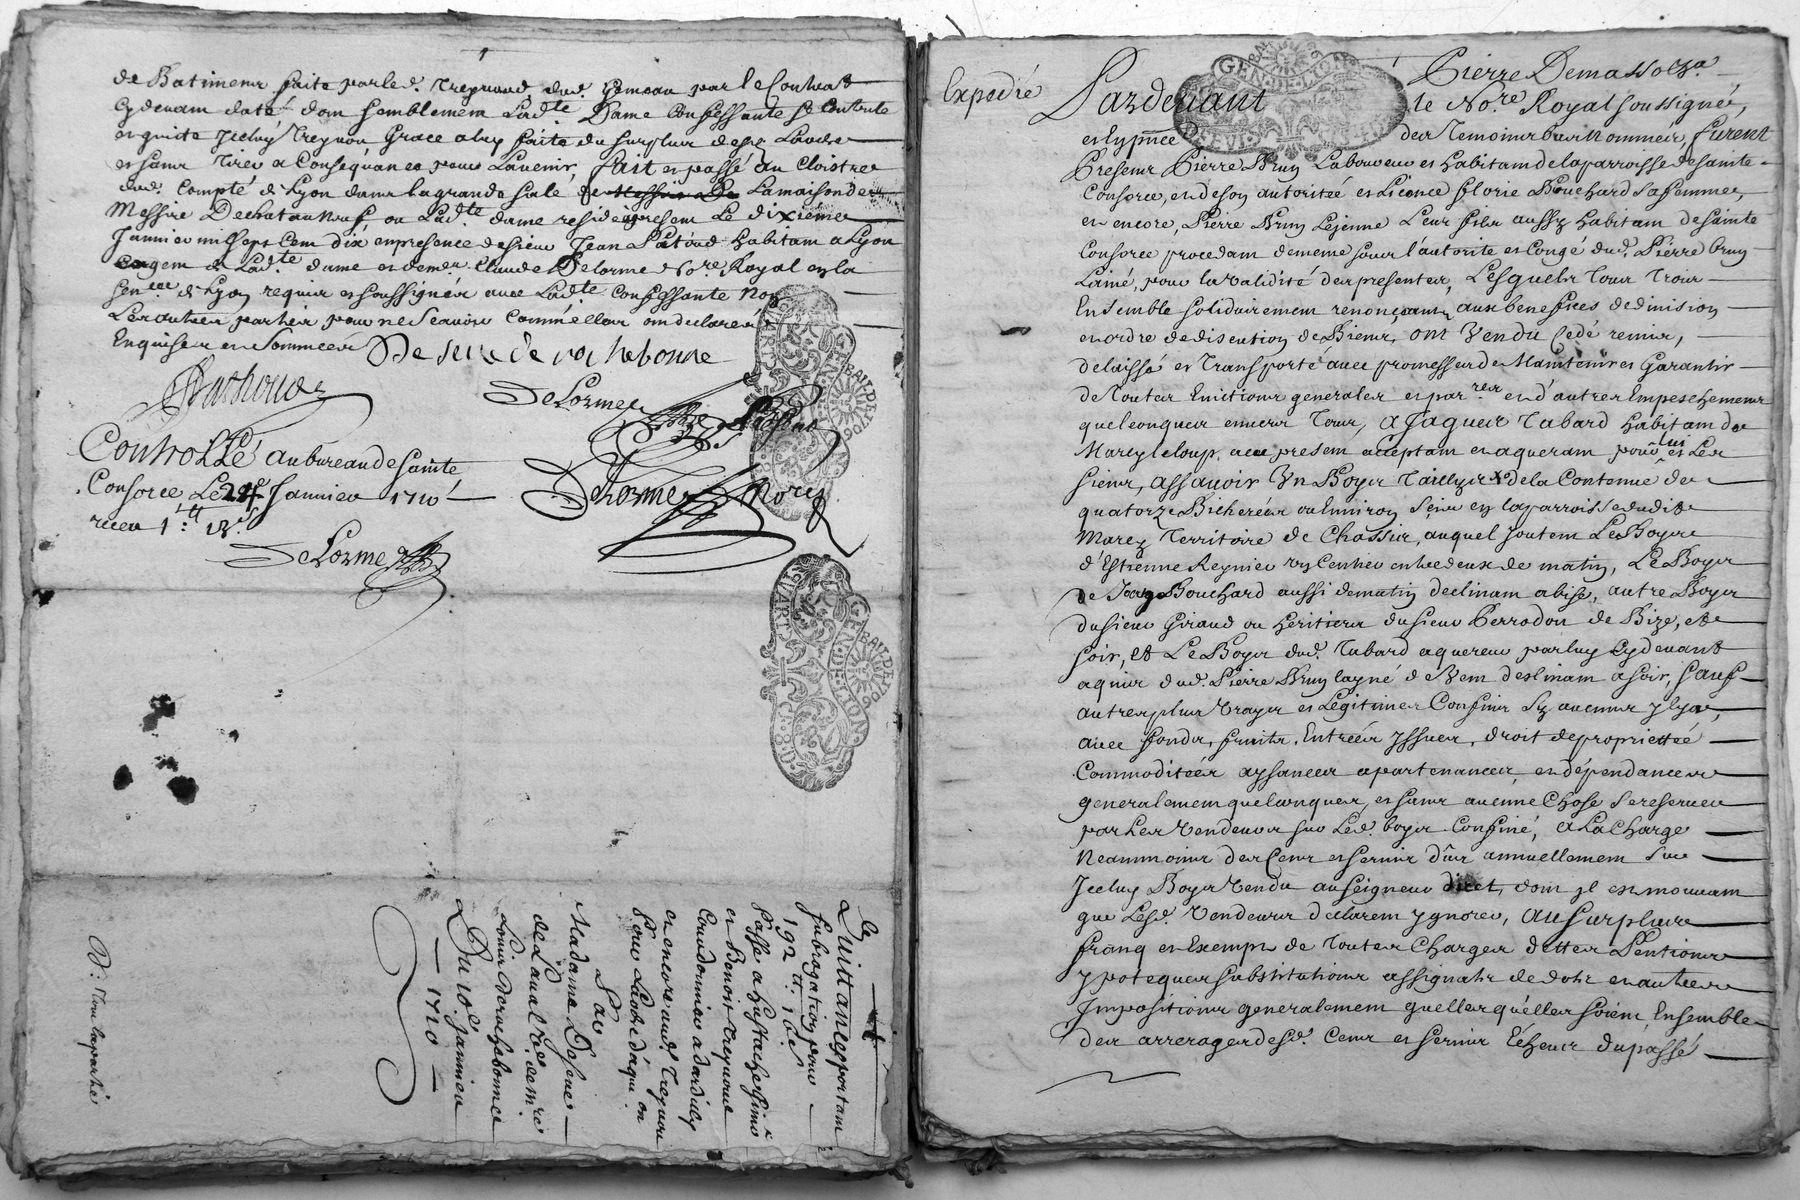 de Batimens faite par led. Treynond dud. Jemeau par le Contrat
Cydevant datté, dont semblement Lad.te Dame Confessante se contente
et quitte Jceluy Treynon Grace a luy faite du surplus desd. Laods
et sans Tirer a Consequance pour Lavenir, fait et passé au Cloistre
dud. Compté de Lyon dans la grande sale de Lamaison de
Messire Dechateauneuf ou Lad.te dame reside apresent Le dixiéme
Janvier mil sept Cent dix en presence de sieur Jean Habitant a Lyon
de Lad.te dame et de me.r Claude Delorme No.re Royal en la
Sen.cée de Lyon requis et soussignés avec Lad.te Confessante Non
Les autres parties pour ne Scavoir Comme elles ont declaré
Enquises et Sommées De serre de rochebonne
DeLorme
DeLorme Nore
Controllé au bureau de sainte
Consorce Le 24e Janvier 1710
receu 1:tt
DeLorme
BAIL DE 1706
GEN. DE LION
QUARTS
8.D
BAIL DE 1706
GEN. DE LION
QUARTS
8.D
Le
Quittance portant
subrogation pour
192 tt. 16s
Passé a
et Benoit Treynond
Cordonnier a dardilly
et encore aud. Treynon
Pour Laods d'aqui on
Par
Madame De serre
de Laval
Deroche bonne
Du 10e. Janvier
1710
Expedié
Pardevant Pierre Demassoza
le No.re Royal soussigné,
et en presence des Temoins bas Nommés, furent
Presens Pierre Brun Laboureur et habitant de la parroisse de sainte
Consorce, et de son autorité et Licence florie Bouchard sa femme,
et encore, Pierre Brun Lejeune Leur fils aussy habitant de sainte
Consorce procedant de meme sous l'autorité et Congé dud. Pierre brun
Lainé, pour la validité des presentes, Lesquels Tous Trois
Ensemble solidairement renonçants aux benefices de division
et ordre de discution de Biens, ont Vendu Cedé remis,
delaissé et Transporté avec promesses de Maintenir et Garantir
de Toutes Evictions generales et par.res et d'autres Empeschemens
quelconques envers Tous, A Jaques Tabard habitant de
Marcy le loup, acceptant et aquerant pour lui et Les
siens, assavoir Un Boyer Taillyer de la Contenue de
quatorze Bicherées ou Environ Situé en la parroisse dudit
Marcy Territoire de Chassir, auquel joutent Le Boyer
d'Estienne Reynier un Centier entre deux de matin, Le Boyer
de Jean Bouchard aussi de matin declinant a bise, autre Boyer
du sieur Giraud ou heritiers du sieur Perrodon de Bize, et de
soir, et Le Boyer dud. Tabard aquereur par luy Cy devant
aquis dud. Pierre Brun layné de Vent declinant a soir, sauf
autres plus Vrayes et Legitimes Confins Sy aucuns y en a,
avec fonds, fruits, Entrées yssues, droit de proprietté
Commodités aysances apartenances, et dépendances
generalement quelconques, et sans aucune Chose se reserver
par Les Vendeurs sur Led. boyer Confiné, A La Charge
Neanmoins des Cens et servis dûs annuellement sur
Jceluy Boyer Vendu au Seigneur direct, dont jl est mouvant
que Lesd. Vendeurs declarent Ygnorer, Au surplus
franq et Exempt de Toutes Charges dettes Pentions
ypoteques substitutions assignats de dots et autres
Impositions generalement quelles quelles soient, Ensemble
des arrerages desd. Cens et servis Echeus du passé